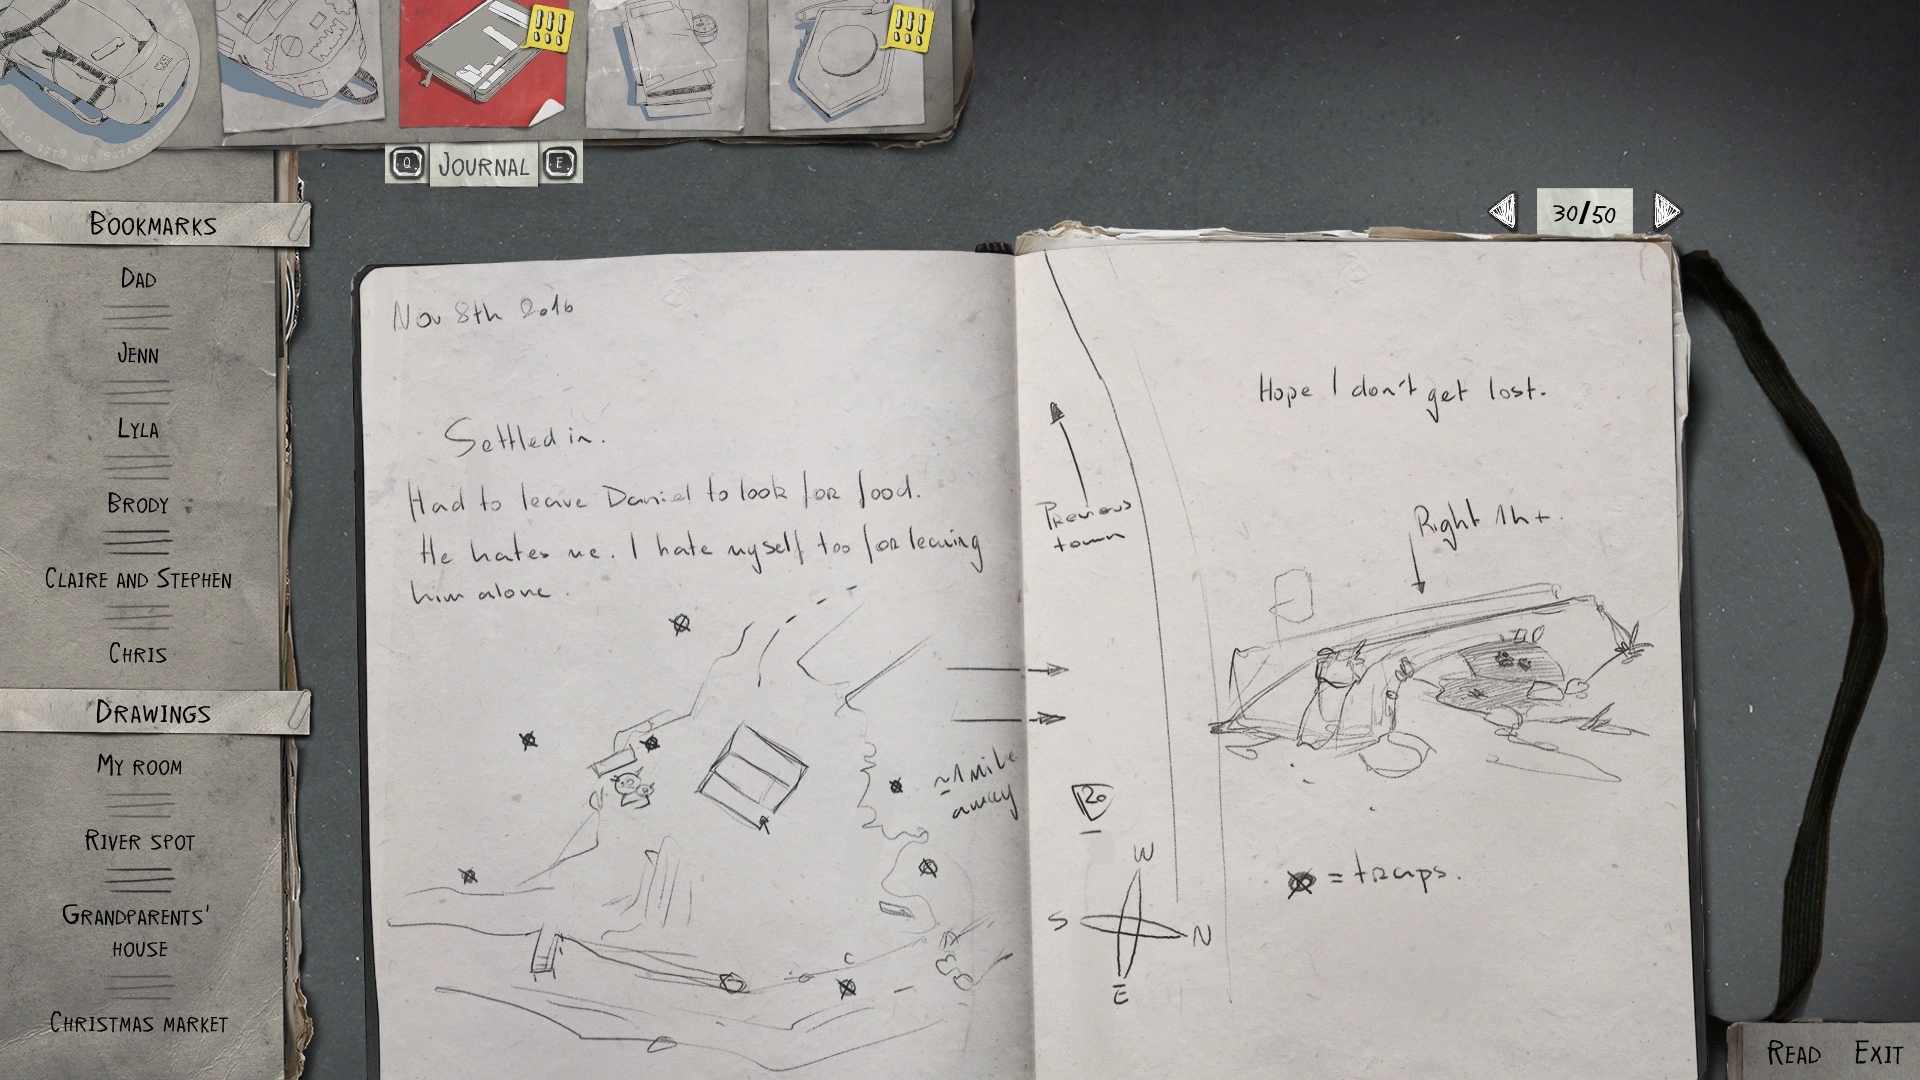 Q JOURNAL E
30/50
BOOKMARKS
DAD
JENN
LYLA
BRODY
CLAIRE AND STEPHEN
CHRIS
DRAWINGS
MY ROOM
RIVER SPOT
GRANDPARENTS'
HOUSE
CHRISTMAS MARKET
Nov 8th 2016
Settled in.
Had to leave Daniel to look for food.
He hates me. I hate myself too for leaving
him alone.
~1 mile
away
Previous
town
20
W
S
N
E
Hope I don't get lost.
Right
= traps.
READ EXIT